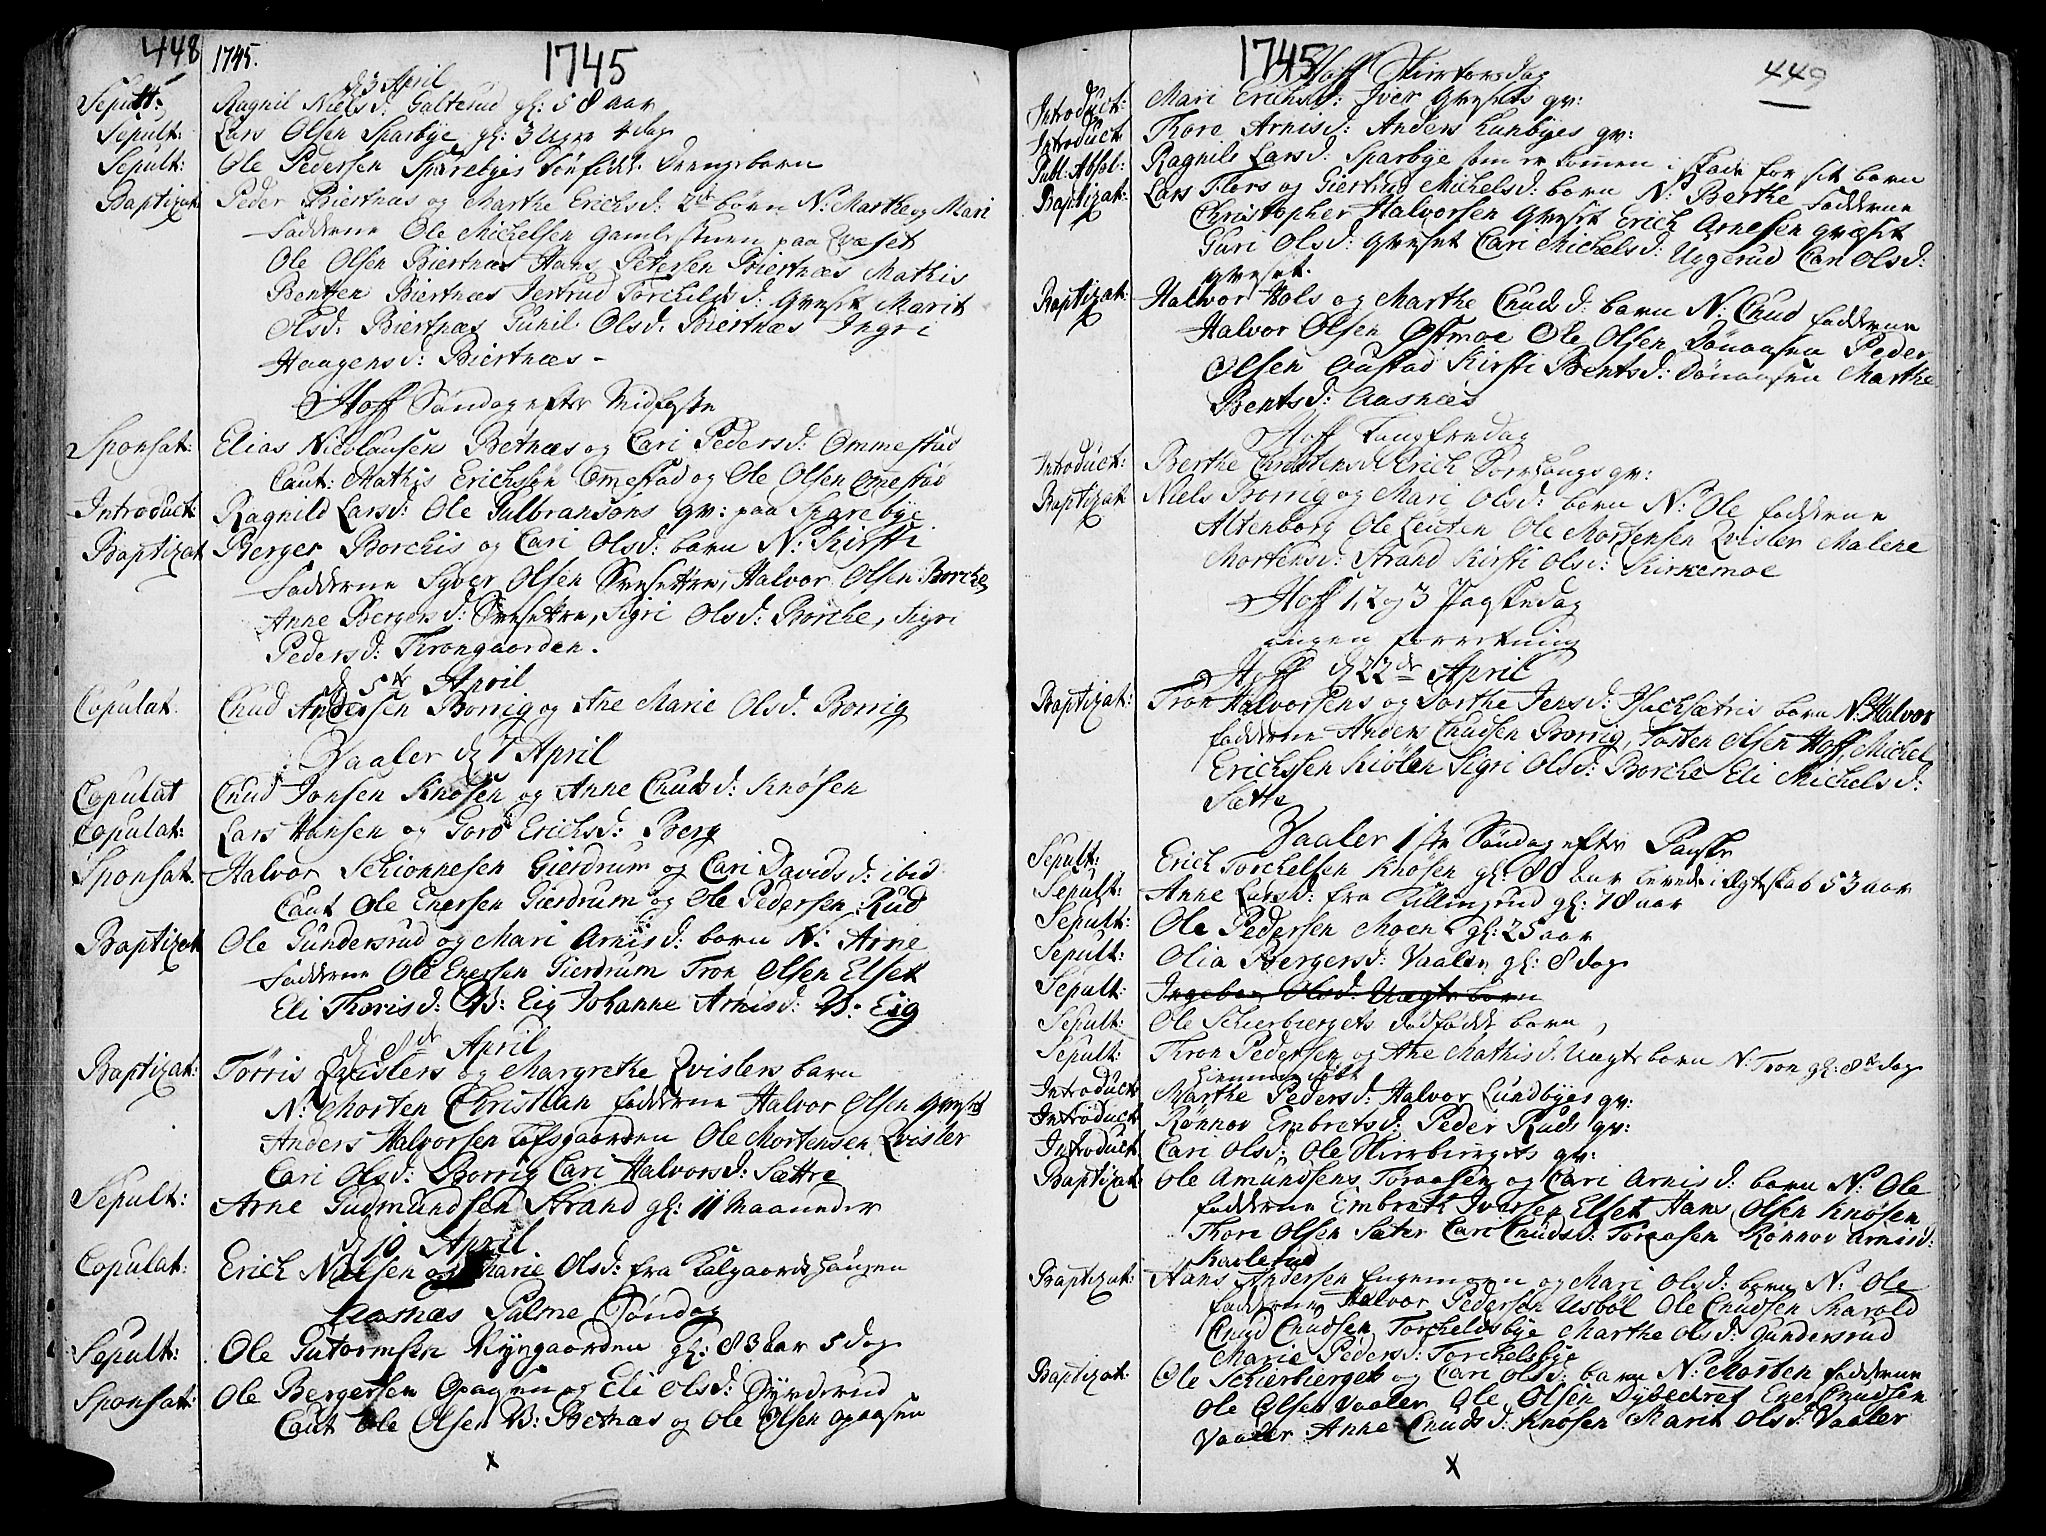 448 1745. 1745
d 3 April
Sepult: Ragnil Nielsd: Galterud gl: 58 aar
Sepult: Lars Olsen Sparbye gl: 3 Uger 4 dag
Sepult: Ole Pedersen Sparebyes dødfødt drengebarn
Baptizat Peder Biertnæs og Marthe Erichsd: 2de børn N: Marthe og Mari
fadderne Ole Michelsen gamlestuen paa Qvæset
Ole Olsen Biertnæs Hans Petersen Biertnæs Mathis
Bentsen Biertnæs Jertrud Torchelsd: Gveset Marit
Olsd: Biertnæs Gunil Olsd: Biertnæs Ingri
Haagensd: Biertnæs -
Hoff Søndag efter Midfaste
Sponsat: Elias Nicolausen Betnæs og Cari Pedersd: Ommestad
Caut: Mathis Erichsen Omestad og Ole Olsen Omestad
Introduct: Ragnild Larsd: Ole Gulbransøns qv: paa Sparebye
Baptizat Berger Borchis og Cari Olsd: barn N: Kirsti
fadderne Syver Olsen Svesetre, Halvor Olsen Borche
Anne Bergersd: Svesettre, Sigri Olsd: Borche, Sigri
Pedersd: Throngaarden.
d 5te April
Copulat. Cnud Andersen Borrig og Ane Marie Olsd. Borrig
Vaaler d 7 April
Copulat Cnud Jonsen Knøsen og Anne Cnudsd: Knøsen
Copulat: Lars Hansen og Goro Erichsd: Berg
Sponsat. Halvor Schionnesen Gierdrum og Cari Davidsd: ibid
Caut Ole Enersen Gierdrum og Ole Pedersen Rud
Baptizat Ole Gundersrud og Mari Arnisd: barn N: Arne
fadderne Ole Enersen Gierdrum Tron Olsen Elset
Eli Thorisd: B: Eig Johanne Arnisd: B: Eig
d 8de April
Baptizat: Tørris Qvislers og Margrethe Qvislers barn
N: Morten Christian fadderne Halvor Olsen Gveset
Anders Halvorsen Tofsgaarden Ole Mortensen Qvisler
Cari Olsd: Borrig Cari Halvorsd: Sættre
Sepult: Arne Gudmundsen Strand gl: 11 Maaneder
d 10 April
Copulat: Erich Nielsen og Marie Olsd: fra Kalgaards haugen
Aasnæs Palme Søndag
Sepult: Ole Gutormsen Nyngaarden gl: 83 aar 5 dag
Sponsat: Ole Bergersen Opagen og Eli Olsd: Synderud
Caut Ole Olsen B: Betnæs og Ole Olsen Opagsen
x
1745 449
Hoff Skiertorsdag
Introduct: Mari Erichsd: Iver Gvesets qv:
Introduct Thore Arnisd: Anders Lunbyes qv:
Publ: Absol: Ragnile Larsd: Sparbye som er kommen i skade for sit barn
Baptizat: Lars Flers og Giertrud Michelsd: barn N: Berthe fadderne
Christopher Halvorsen Gveset Erich Arnesen Gvæset
Guri Olsd: Gveset Cari Michelsd: Uggerud Cari Olsd:
Gveset.
Baptizat: Halvor Hols og Marthe Cnudsd: barn N: Cnud fadderne
Halvor Olsen Ostmoe Ole Olsen Dønansen Peder
Olsen Oustad Kirsti Bentsd: Dønansen Marthe
Bentsd: Aasnæs
Hoff Langfredag
Introduct: Berthe Christensd Erich Sorchougs qv:
Baptizat Niels Borrig og Mari Olsd: barn N: Ole fadderne
Altenborg Ole Leuten Ole Mortensen Qvisler Malene
Mortensd: Strand Kirsti Olsd: Kirkemoe
Hoff 1, 2 og 3 Paaskedag
ingen forretning
Hoff d 22de April
Baptizat: Tron Halvorsens og Dorthe Jensd: Hachsætris barn N: Halvor
fadderne Anders Cnudsen Borrig, Tosten Olsen Hoff, Michel
Erichsen Kiølen Sigri Olsd: Borche Eli Michelsd:
Sætte
Vaaler 1ste Søndag efter Paaske
Sepult: Erich Torchelsen Knøsen gl: 80 aar levede i Ægteskab 53 aar
Sepult: Anne Larsd: fra Kullingrud gl: 78 aar
Sepult: Ole Pedersen Moen gl: 25 aar
Sepult: Olia Bergersd: Vaaler gl: 8 dag
Sepult: Ingebor Olsd: Uægte barn
Sepult: Ole Schierbiergets dødfødde barn
Sepult: Thron Pedersen og Ane Mathisd: Uægte barn N: Tron gl: 8te dag
hiemme døbt
Introduct Marthe Pedersd: Halvor Lundbyes qv:
Introduct Rønnov Embretsd: Peder Ruds qv:
Introduct Cari Olsd: Ole Skierbiergets qv:
Baptizat Ole Amundsens Toraasen og Cari Arnisd: barn N: Ole
fadderne Embreth Iversen Elset Hans Olsen Knøsen
Thore Olsen Sæter Cari Cnudsd: Toraasen Rønnov Arnisd:
Karlerud
Baptizat: Hans Andersen Engemoen og Mari Olsd: barn N: Ole
fadderne Halvor Pedersen Usbøl Ole Cnudsen Skarold
Cnud Cnudsen Torcheldsbye Marthe Olsd: Gundersrud
Marie Pedersd: Torchelsbye
Baptizat: Ole Schierbierget og Cari Olsd: barn N: Morten fadderne
Ole Olsen Vaaler Ole Olsen Dybedref Ener Cnudsen
Vaaler Anne Cnudsd: Knøsen Marit Olsd: Vaaler
x